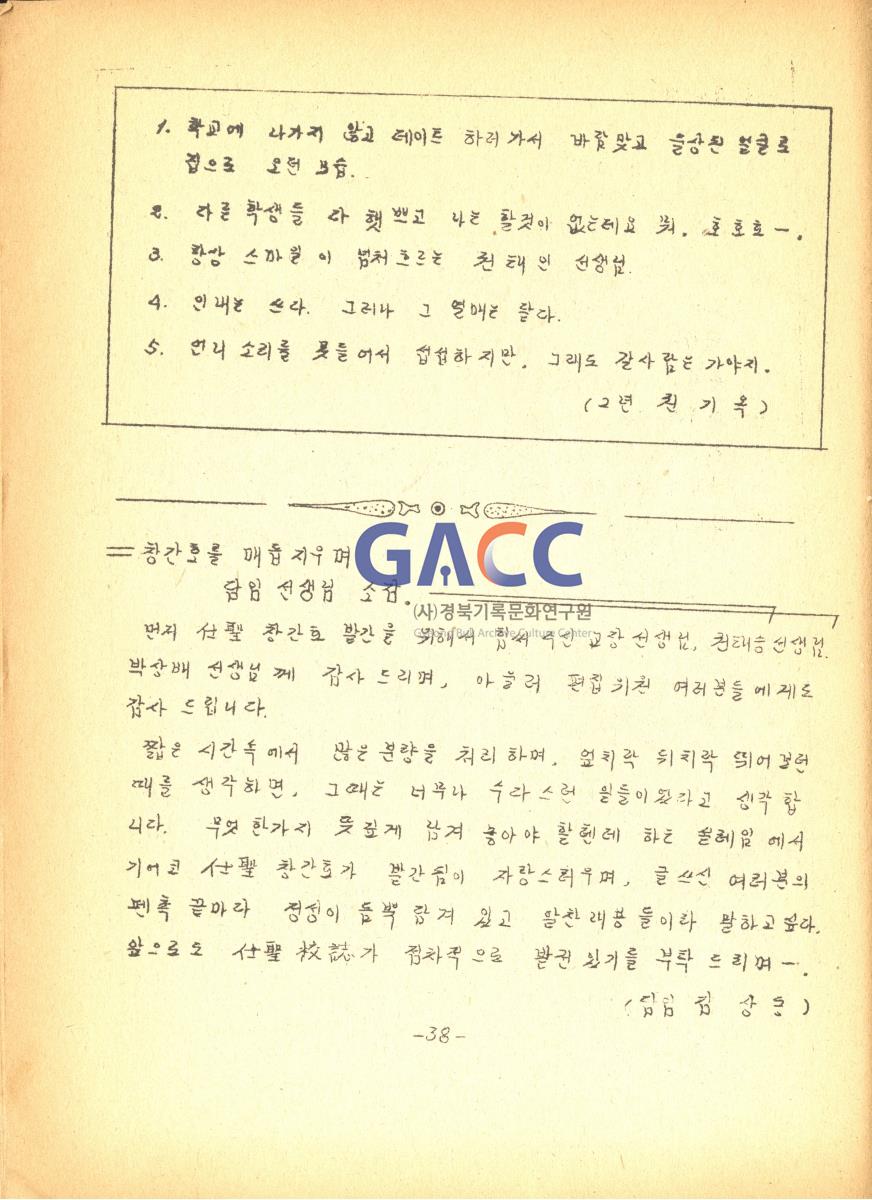 1. 학교에 나가지 않고 데이트 하러 가서 바람맞고 울상된 얼굴로
집으로 오던 모습.
2. 다른 학생들 다 햇쁘고 나는 할것이 없는데요 뭐. 호호호ㅡ.
3. 항상 스마일이 넘처흐르는 권태인 선생님.
4. 인내는 쓰다. 그러나 그 열매는 달다.
5. 언니 소리를 못들어서 섭섭하지만. 그래도 갈사람은 가야지.
(2년 권 기 옥)
= 창간호를 매듭지우며
담임 선생님 소감.
GACC
(사)경북기록문화연구원
먼저 仕聖 창간호 발간을 위해서 힘써 주신 교장선생님, 권태승선생님.
박상배 선생님께 감사 드리며, 아울러 편집위원 여러분들에게도
감사 드립니다.
짧은 시간속에서 많은분량을 처리하며, 엎치락 뒤치락 뛰어걸던
때를 생각하면, 그때는 너무나 수다스런 일들이였다고 생각 합
니다. 무엇 한가지 뜻깊게 남겨 놓아야 할텐데 하는 설레임에서
기어코 仕聖 창간호가 발간됨이 자랑스러우며, 글쓰신 여러분의
펜촉 끝마다 정성이 듬뿍 담겨 있고 알찬 내용들이라 말하고싶다.
앞으로도 仕聖 校誌가 점차적으로 발전 있기를 부탁 드리며ㅡ.
(담임 김 상 동)
-38-